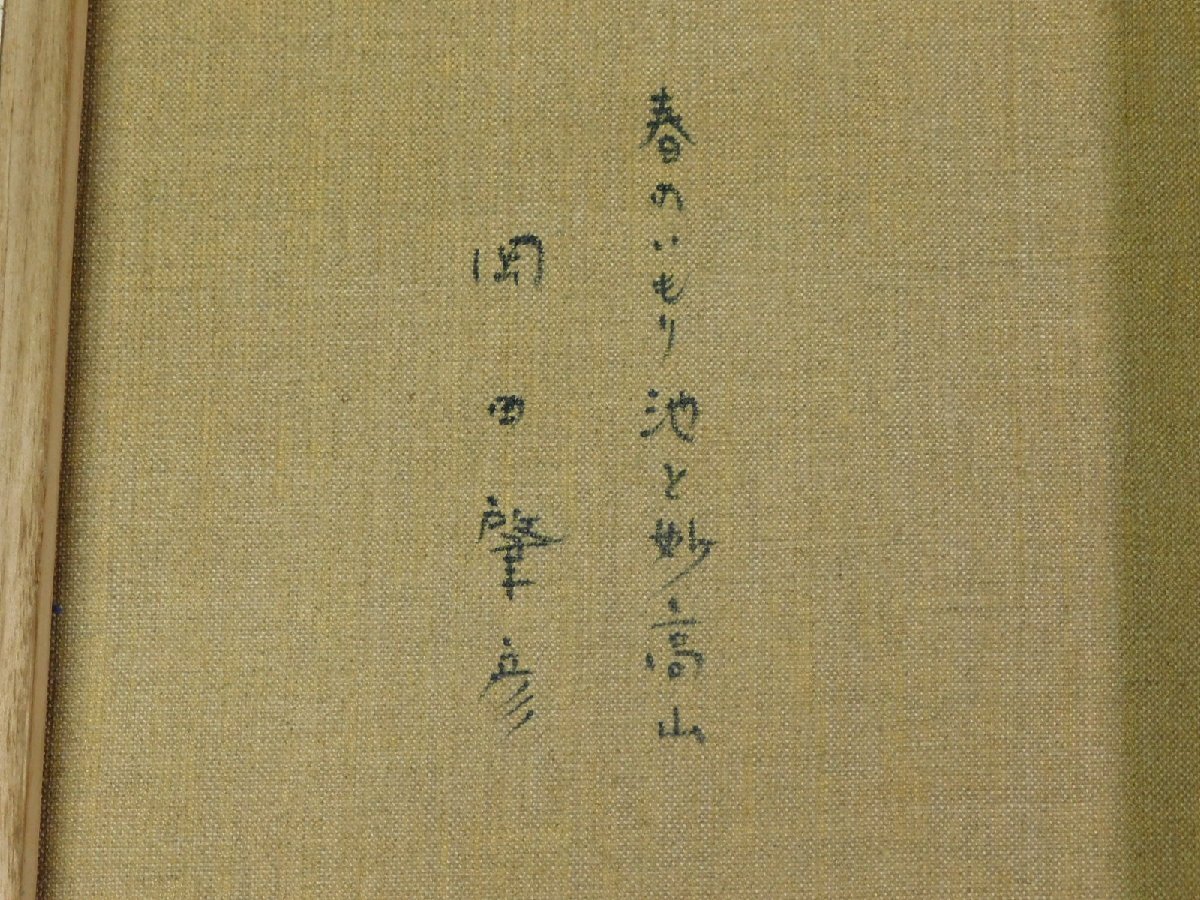 春のいもり池と妙高山
岡田肇彦